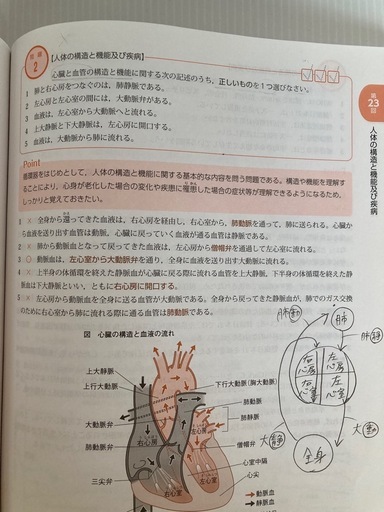 問題2
【人体の構造と機能及び疾病】
心臓と血管の構造と機能に関する次の記述のうち、正しいものを1つ選びなさい。
1 肺と右心房をつなぐのは、肺静脈である。
2 左心房と左心室の間には、大動脈弁がある。
3 血液は、左心室から大動脈へと流れる。
4 上大静脈と下大静脈は、左心房に開口する。
5 血液は、大動脈から肺に流れる。
Point
循環器をはじめとして、人体の構造と機能に関する基本的な内容を問う問題である。構造や機能を理解す
ることにより、心身が老化した場合の変化や疾患に罹患した場合の症状等が理解できるようになるため、
しっかりと覚えておきたい。
1 × 全身から還ってきた血液は、右心房を経由し、右心室から、肺動脈を通って、肺に送られる。心臓か
ら血液を送り出す血管は動脈、心臓に戻っていく血液が通る血管は静脈である。
2 × 肺から動脈血となって戻ってきた血液は、左心房から僧帽弁を通過して左心室に流れる。
3 ○ 動脈血は、左心室から大動脈弁を通り、全身に血液を送り出す大動脈に流れる。
4 × 上半身の体循環を終えた静脈血が心臓に戻る際に流れる血管を上大静脈、下半身の体循環を終えた静
脈血は下大静脈といい、ともに右心房に開口する。
5 × 左心房から動脈血を全身に送る血管が大動脈である。全身から戻ってきた静脈血が、肺でのガス交換
のために右心室から肺に流れる際に通る血管は肺動脈である。
図 心臓の構造と血液の流れ
上大静脈
上行大動脈
大動脈弁
肺動脈弁
三尖弁
下行大動脈(胸大動脈)
肺動脈
肺静脈
僧帽弁
心室中隔
心尖
右心房
左心房
右心室
左心室
動脈血
静脈血
肺動
肺
肺静
右心房
左心房
右心室
左心室
大静
大動
全身
第23回
人体の構造と機能及び疾病